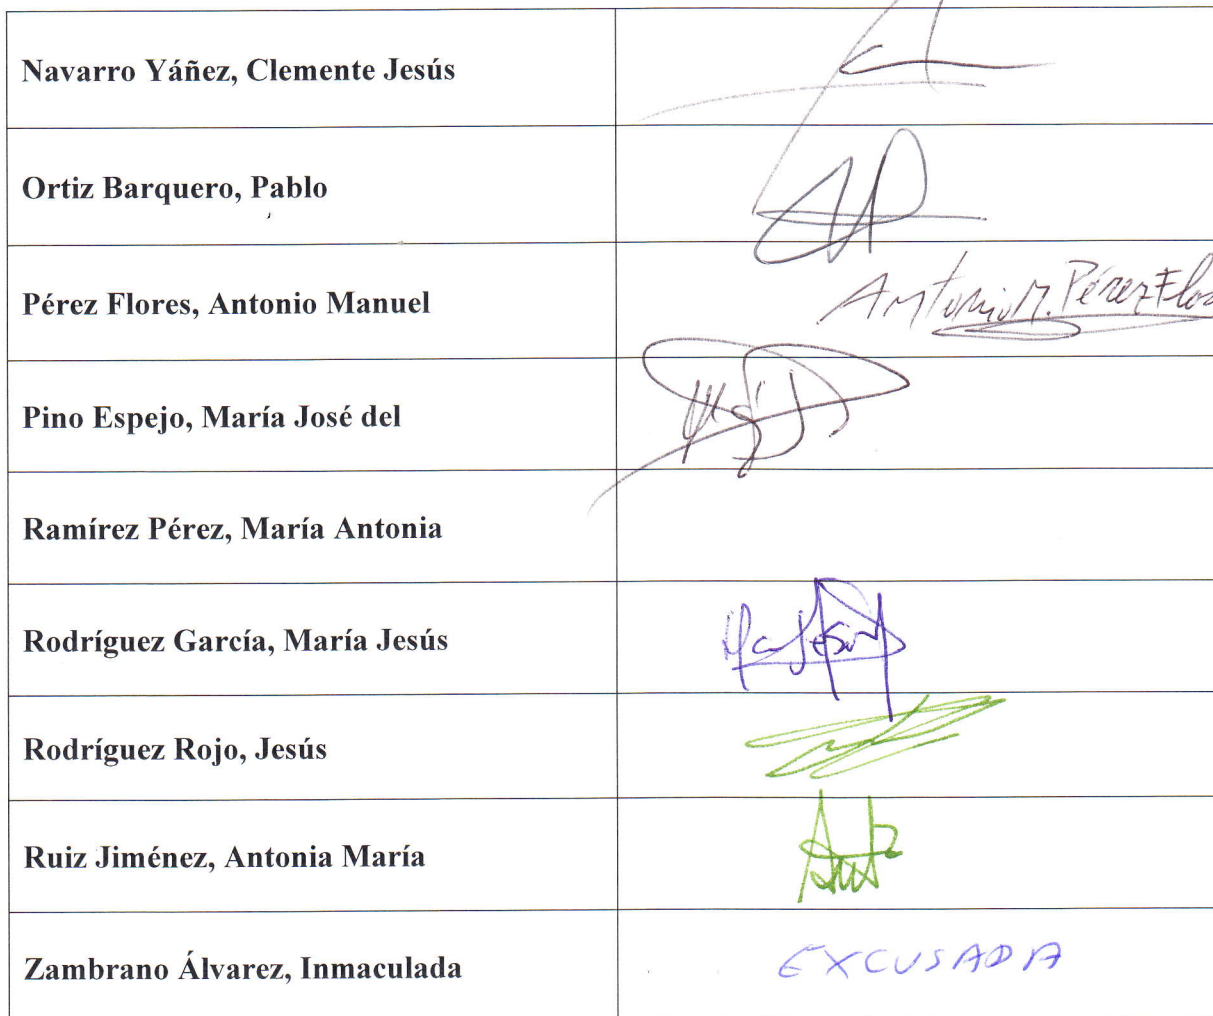 Navarro Yáñez, Clemente Jesús
Ortiz Barquero, Pablo
Pérez Flores, Antonio Manuel
Antonio M. Pérez Flo
Pino Espejo, María José del
Ramírez Pérez, María Antonia
Rodríguez García, María Jesús
Rodríguez Rojo, Jesús
Ruiz Jiménez, Antonia María
Zambrano Álvarez, Inmaculada
EXCUSADA